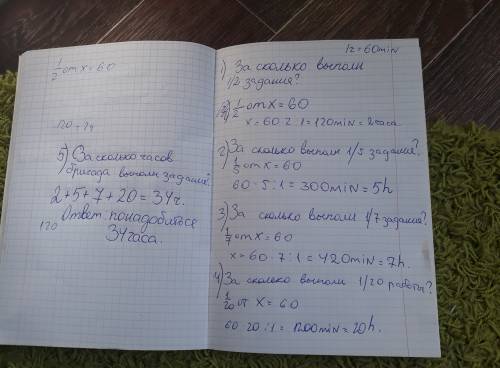 1/2 от x = 60
120
5) За сколько часов
бригада выполн задание?
2+5+7+20=34ч.
Ответ: понадобиться
34 часа.
120
1г=60min
1) За сколько выполн
1/2 задания?
1/2 от x = 60
x = 60 · 2 : 1 = 120min = 2часа
2) За сколько выполн 1/5 задания?
1/5 от x = 60
60 · 5 : 1 = 300min = 5h
3) За сколько выполн 1/7 задания?
1/7 от x = 60
x = 60 · 7 : 1 = 420min = 7h.
4) За сколько выполн 1/20 работы?
1/20 от x = 60
60 · 20 : 1 = 1200min = 20h.